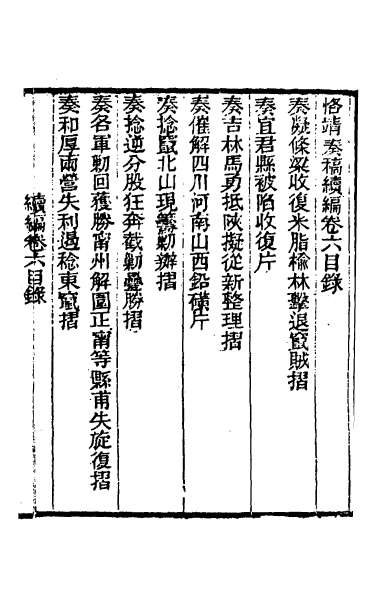 恪靖奏稿續編卷六目錄
奏擬條梁收復米脂榆林擊退竄賊摺
奏宜君縣被陷收復片
奏吉林馬勇抵陝擬從新整理摺
奏催解四川河南山西鉛磺片
奏捻竄北山現籌勦辦摺
奏捻逆分股狂奔截勦疊勝摺
奏各軍勦回獲勝甯州解圍正甯等縣甫失旋復摺
奏和厚兩營失利遇捻東竄摺
續編卷六目錄